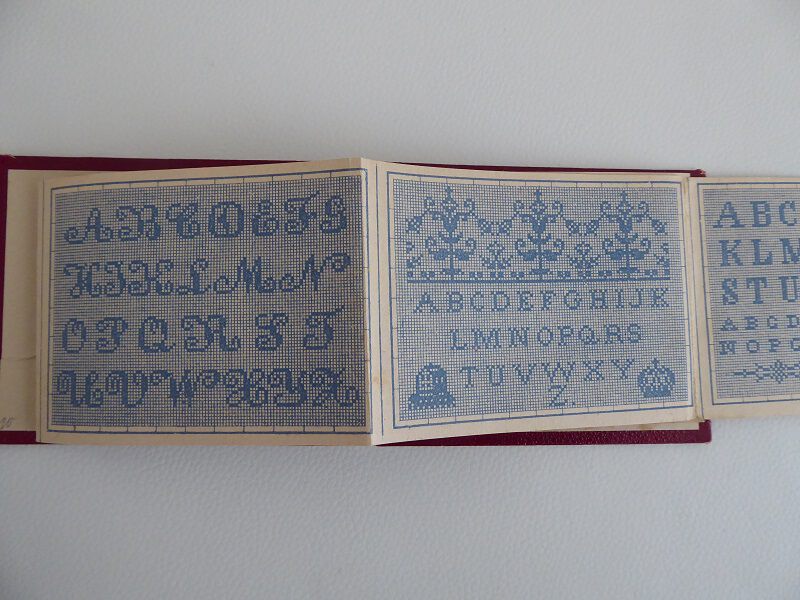 A B C D E F G
H I K L M N
O P Q R S T
U V W X Y Z
ABCDEFGHIJK
LMNOPQRS
TUVWXY
Z.
ABC
KLM
STU
ABCD
NOPQ